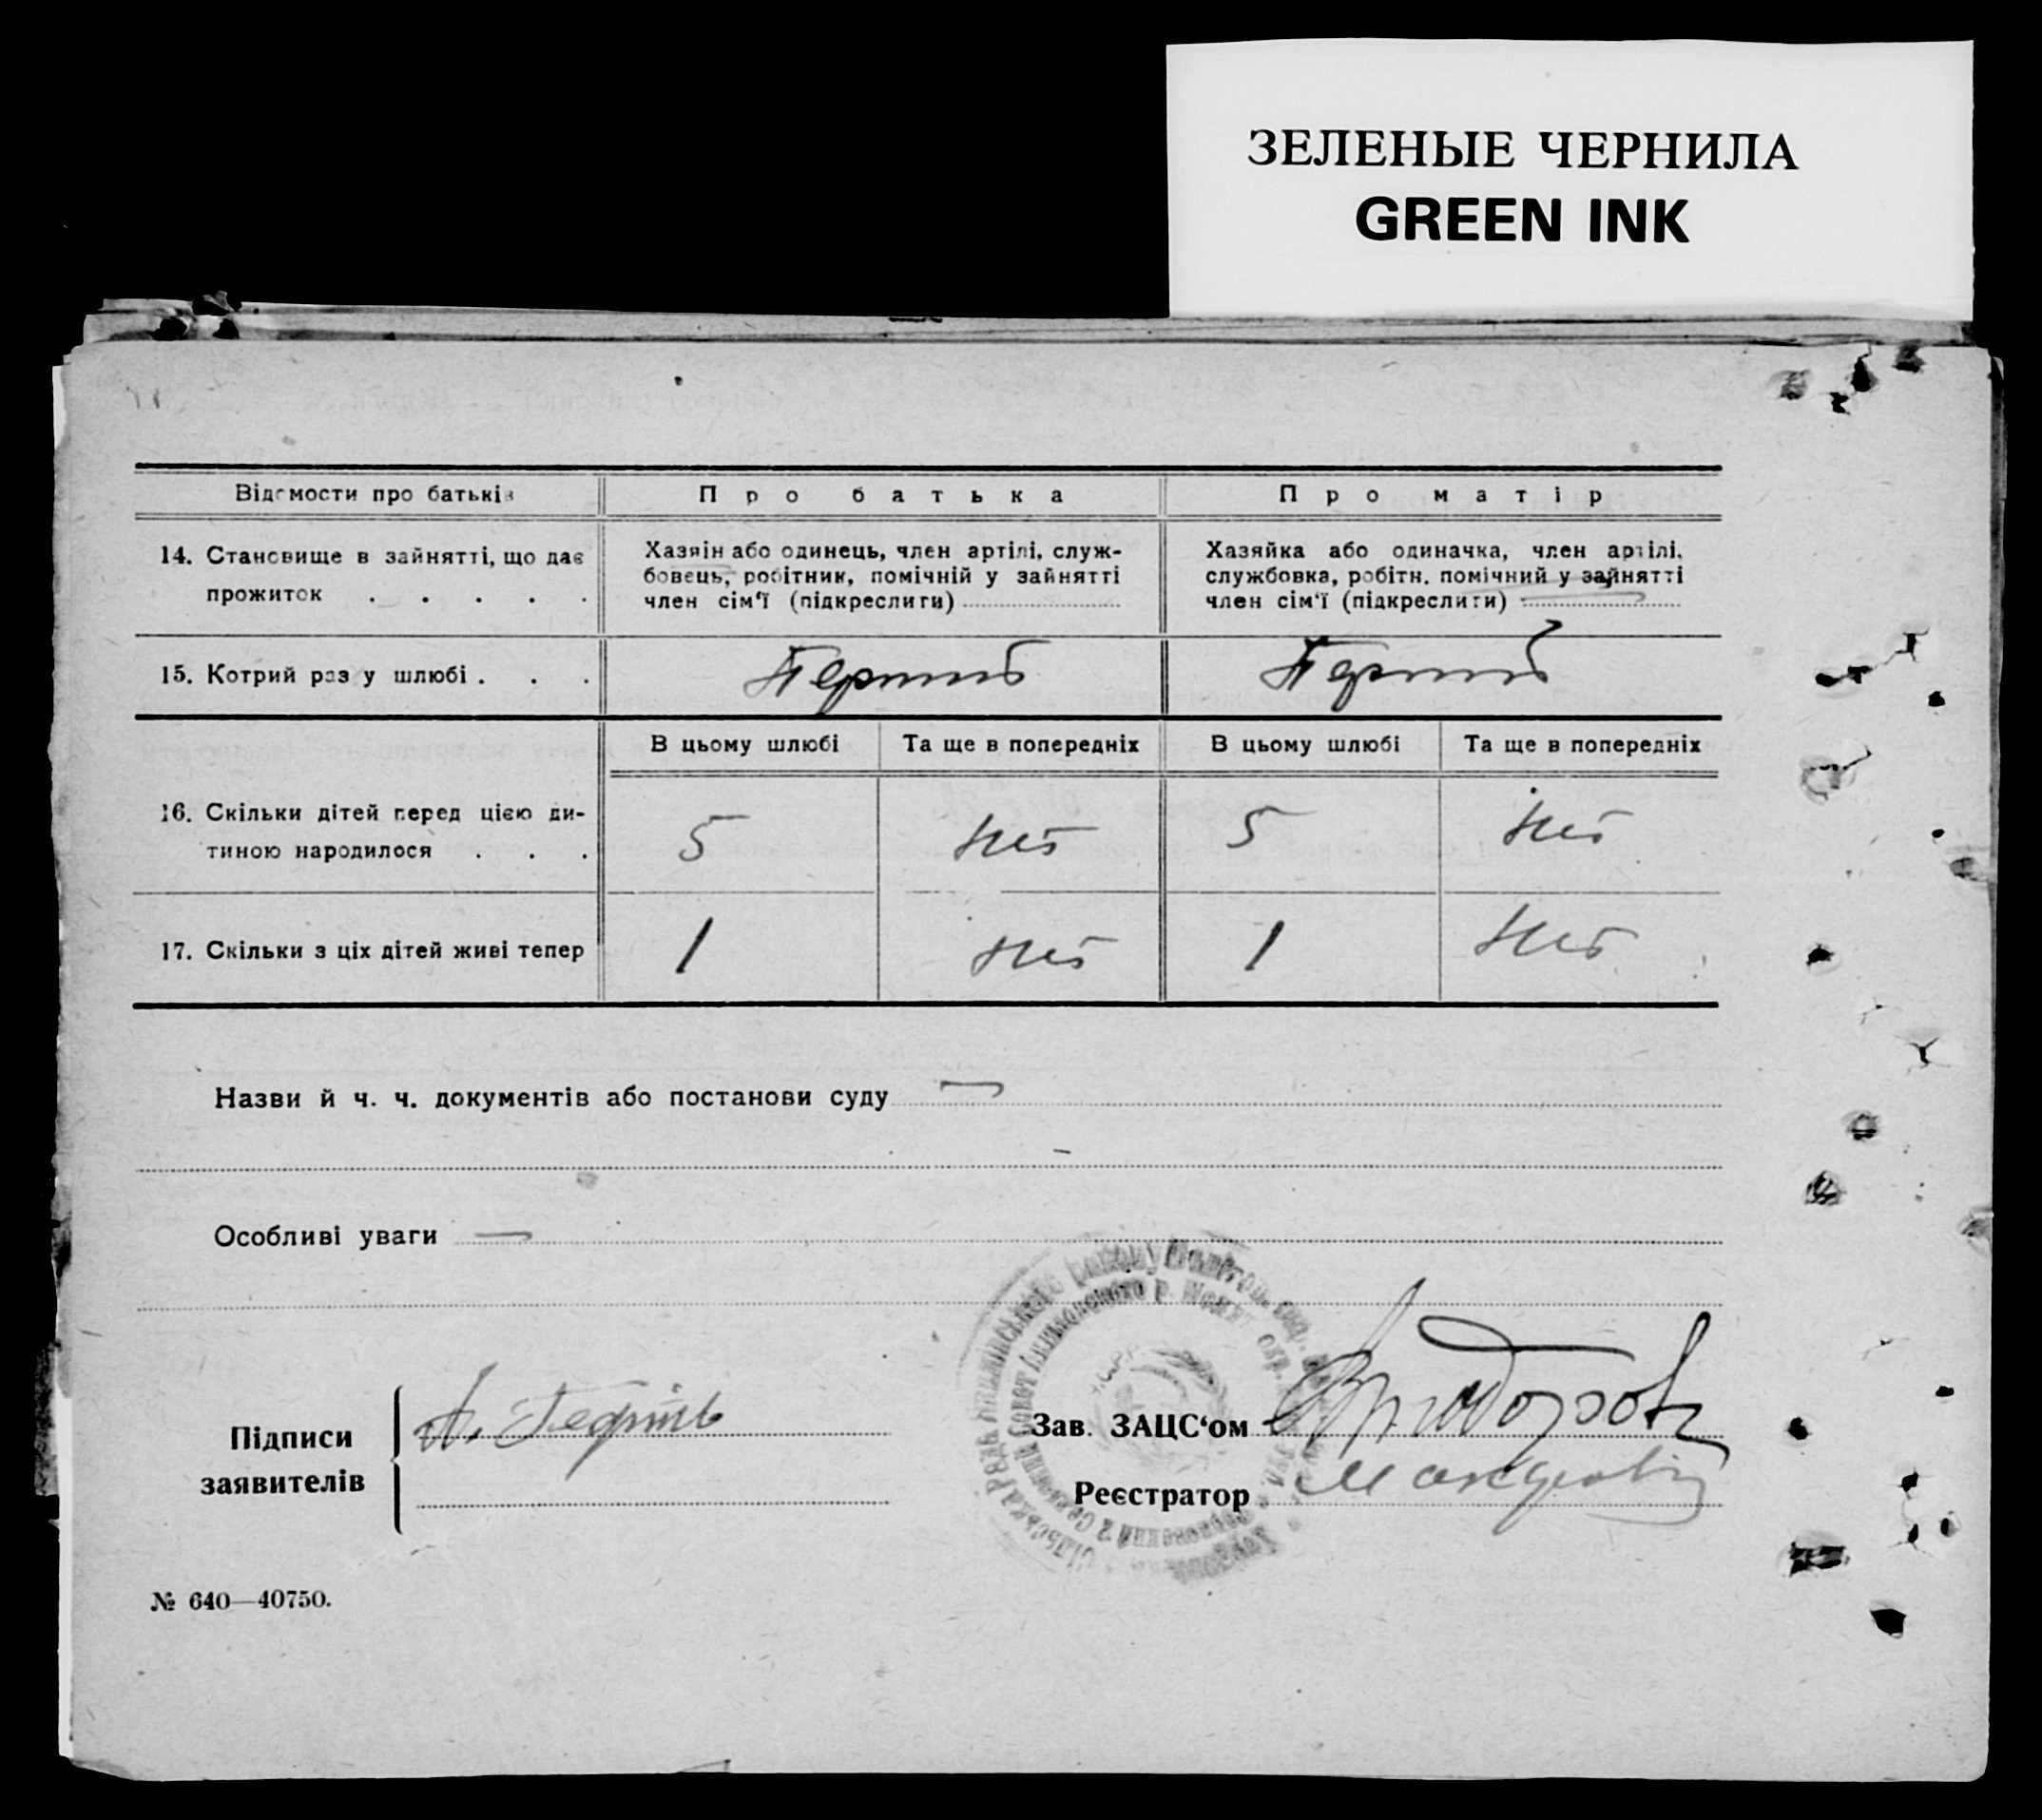 ЗЕЛЕНЫЕ ЧЕРНИЛА
GREEN INK
Відомости про батьків
Про батька
Про матір
14. Становище в зайнятті, що дає
прожиток . . . . .
Хазяїн або одинець, член артілі, служ-
бовець, робітник, помічній у зайнятті
член сім'ї (підкреслити)
Хазяйка або одиначка, член артілі,
службовка, робітн. помічний у зайнятті
член сім'ї (підкреслити)
15. Котрий раз у шлюбі . . .
Перший
Перший
В цьому шлюбі
Та ще в попередніх
В цьому шлюбі
Та ще в попередніх
16. Скільки дітей перед цією ди-
тиною народилося . . .
5
Ні
5
Ні
17. Скільки з ціх дітей живі тепер
1
Ні
1
Ні
Назви й ч. ч. документів або постанови суду —
Особливі уваги —
Підписи
заявителів
Зав. ЗАЦС'ом
Реєстратор
№ 640—40750.